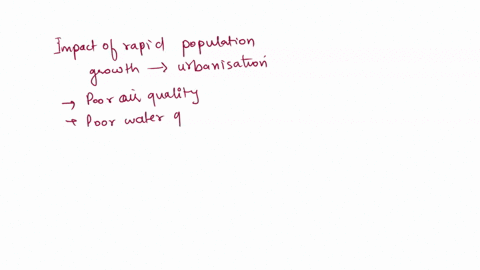 Impact of rapid population
growth → urbanisation
→ Poor air quality
→ Poor water q